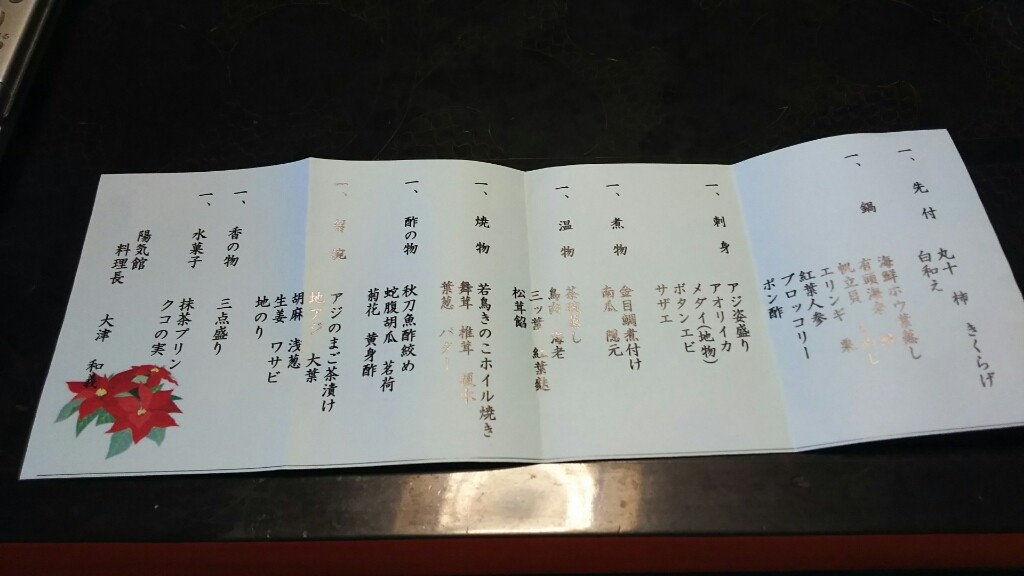 一、先付
丸十 柿 きくらげ
白和え
一、鍋
海鮮ホウ葉蒸し
有頭海老
帆立貝 栗
エリンギ
紅葉人参
ブロッコリー
ポン酢
一、刺身
アジ姿盛り
アオリイカ
メダイ(地物)
ボタンエビ
サザエ
一、煮物
金目鯛煮付け
南瓜 隠元
一、温物
茶碗蒸し
鳥肉 海老
三ッ葉 紅葉麩
松茸餡
一、焼物
若鳥きのこホイル焼き
舞茸 椎茸
葉葱 バター
一、酢の物
秋刀魚酢絞め
蛇腹胡瓜 茗荷
菊花 黄身酢
一、留椀
アジのまご茶漬け
地アジ 大葉
胡麻 浅葱
生姜 ワサビ
地のり
一、香の物
三点盛り
一、水菓子
抹茶プリン
クコの実
陽気館
料理長 大津 和